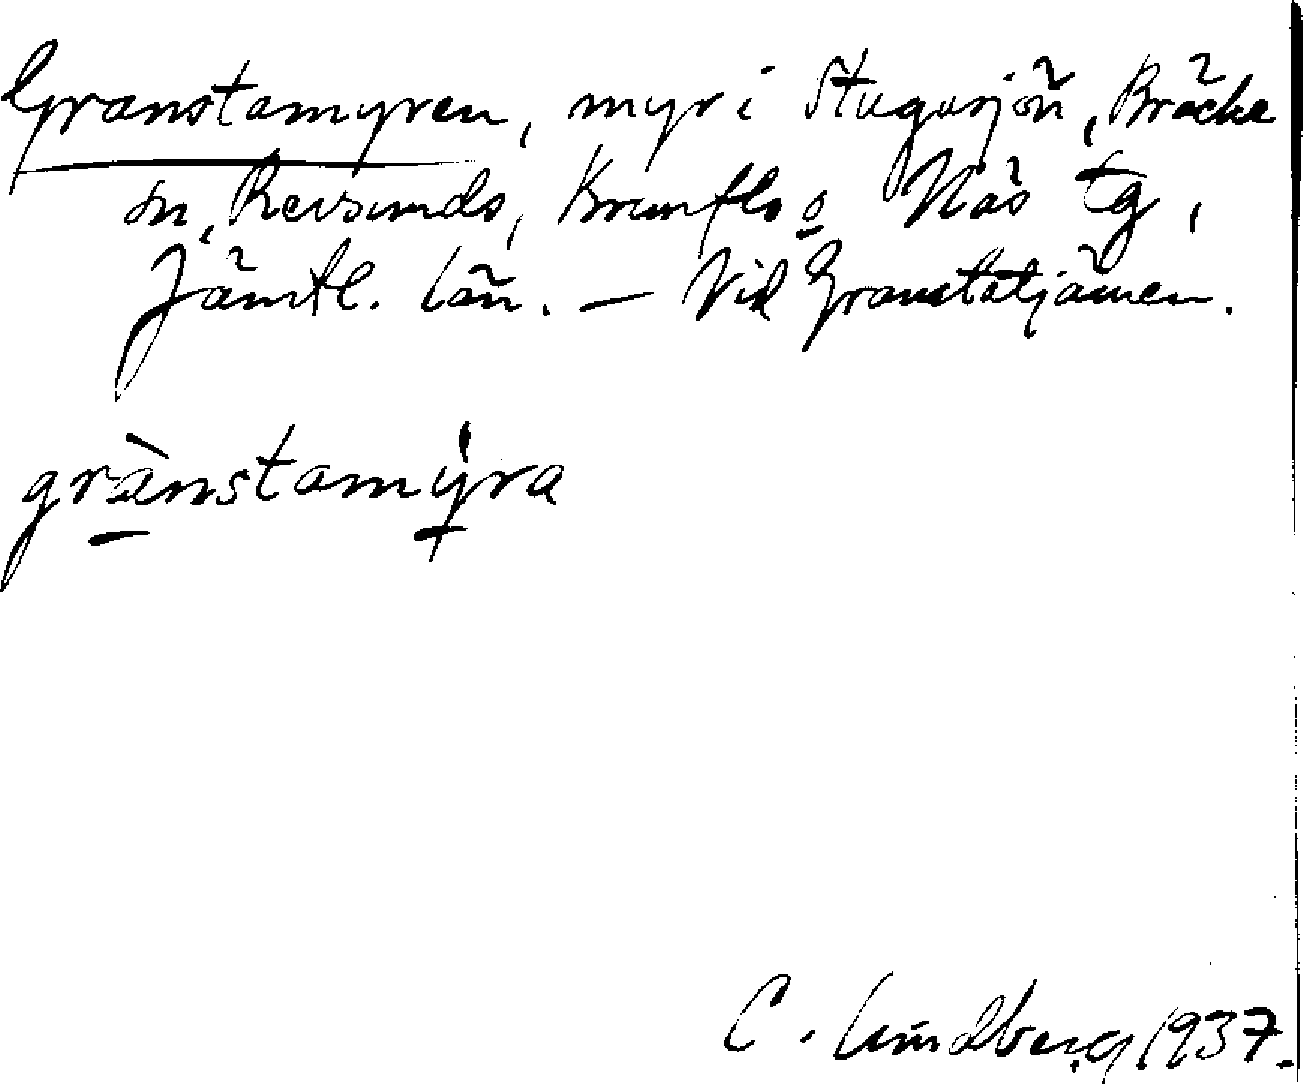 Granstamyren, myr i Stugusjön, Bräcke
sn, Revsunds, Brunflo o Näs tg,
Jämtl. län. – Vid Granstatjärnen.
grànstamýra
C. Lindberg 1937.